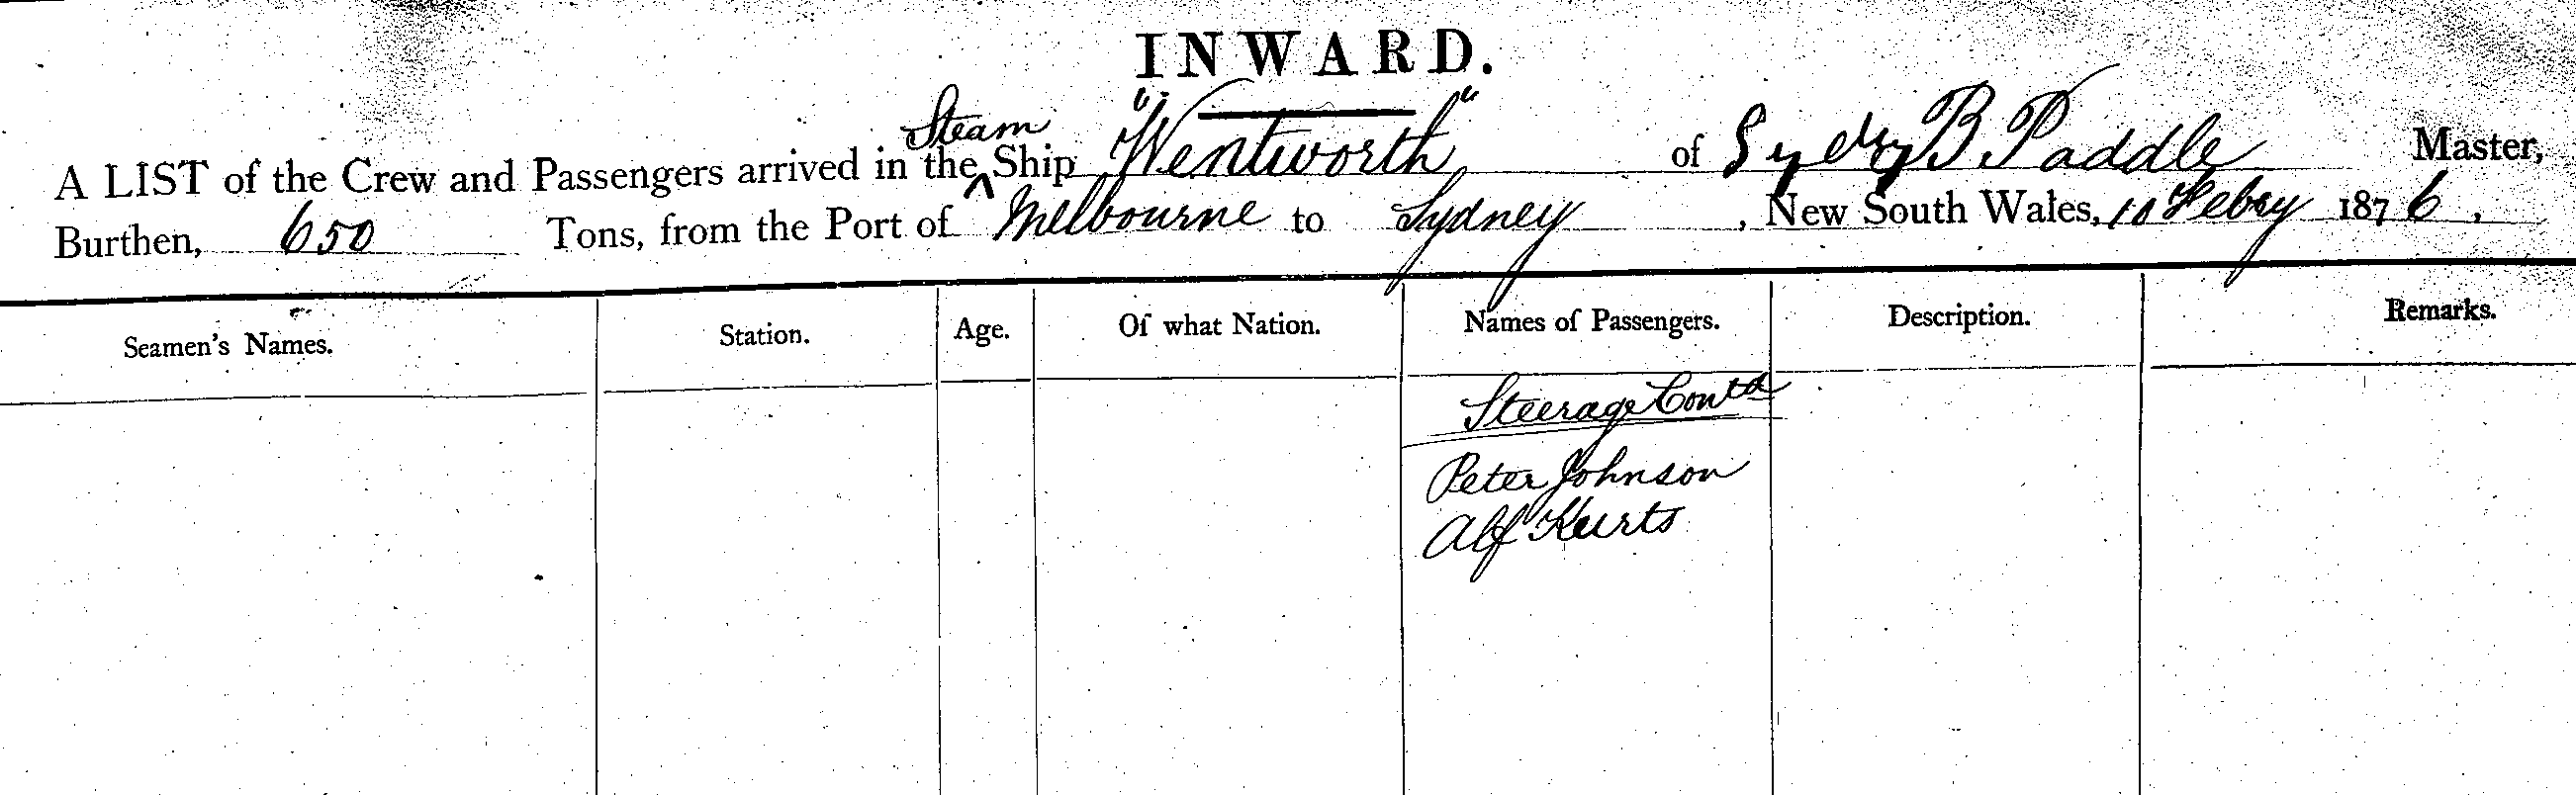 INWARD.
A LIST of the Crew and Passengers arrived in the ^ Steam Ship "Wentworth" of Sydney B. Paddle Master,
Burthen, 650 Tons, from the Port of Melbourne to Sydney, New South Wales, 10 Febry 1876.
Seamen's Names. Station. Age. Of what Nation. Names of Passengers. Description. Remarks.
Steerage Contd
Peter Johnson
Alf Kurts